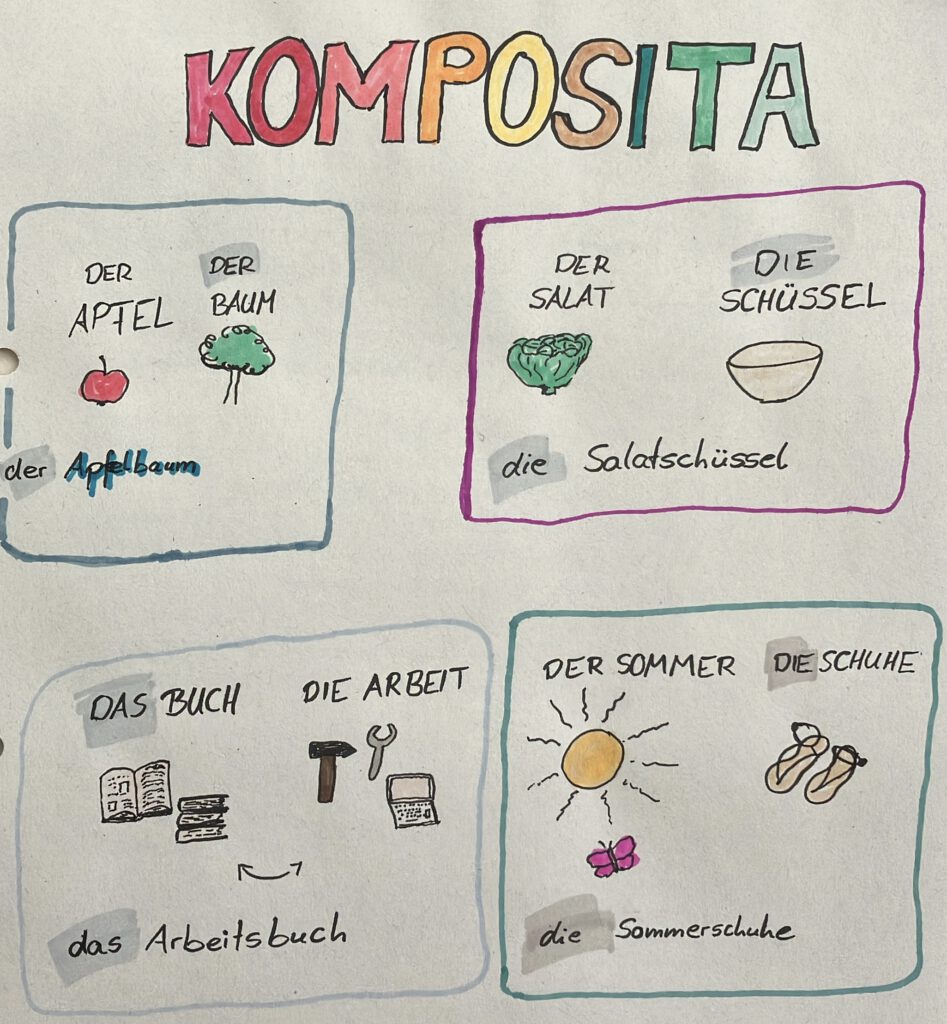 KOMPOSITA
DER
APFEL
DER
BAUM
der Apfelbaum
DER
SALAT
DIE
SCHÜSSEL
die Salatschüssel
DAS BUCH
DIE ARBEIT
das Arbeitsbuch
DER SOMMER
DIE SCHUHE
die Sommerschuhe